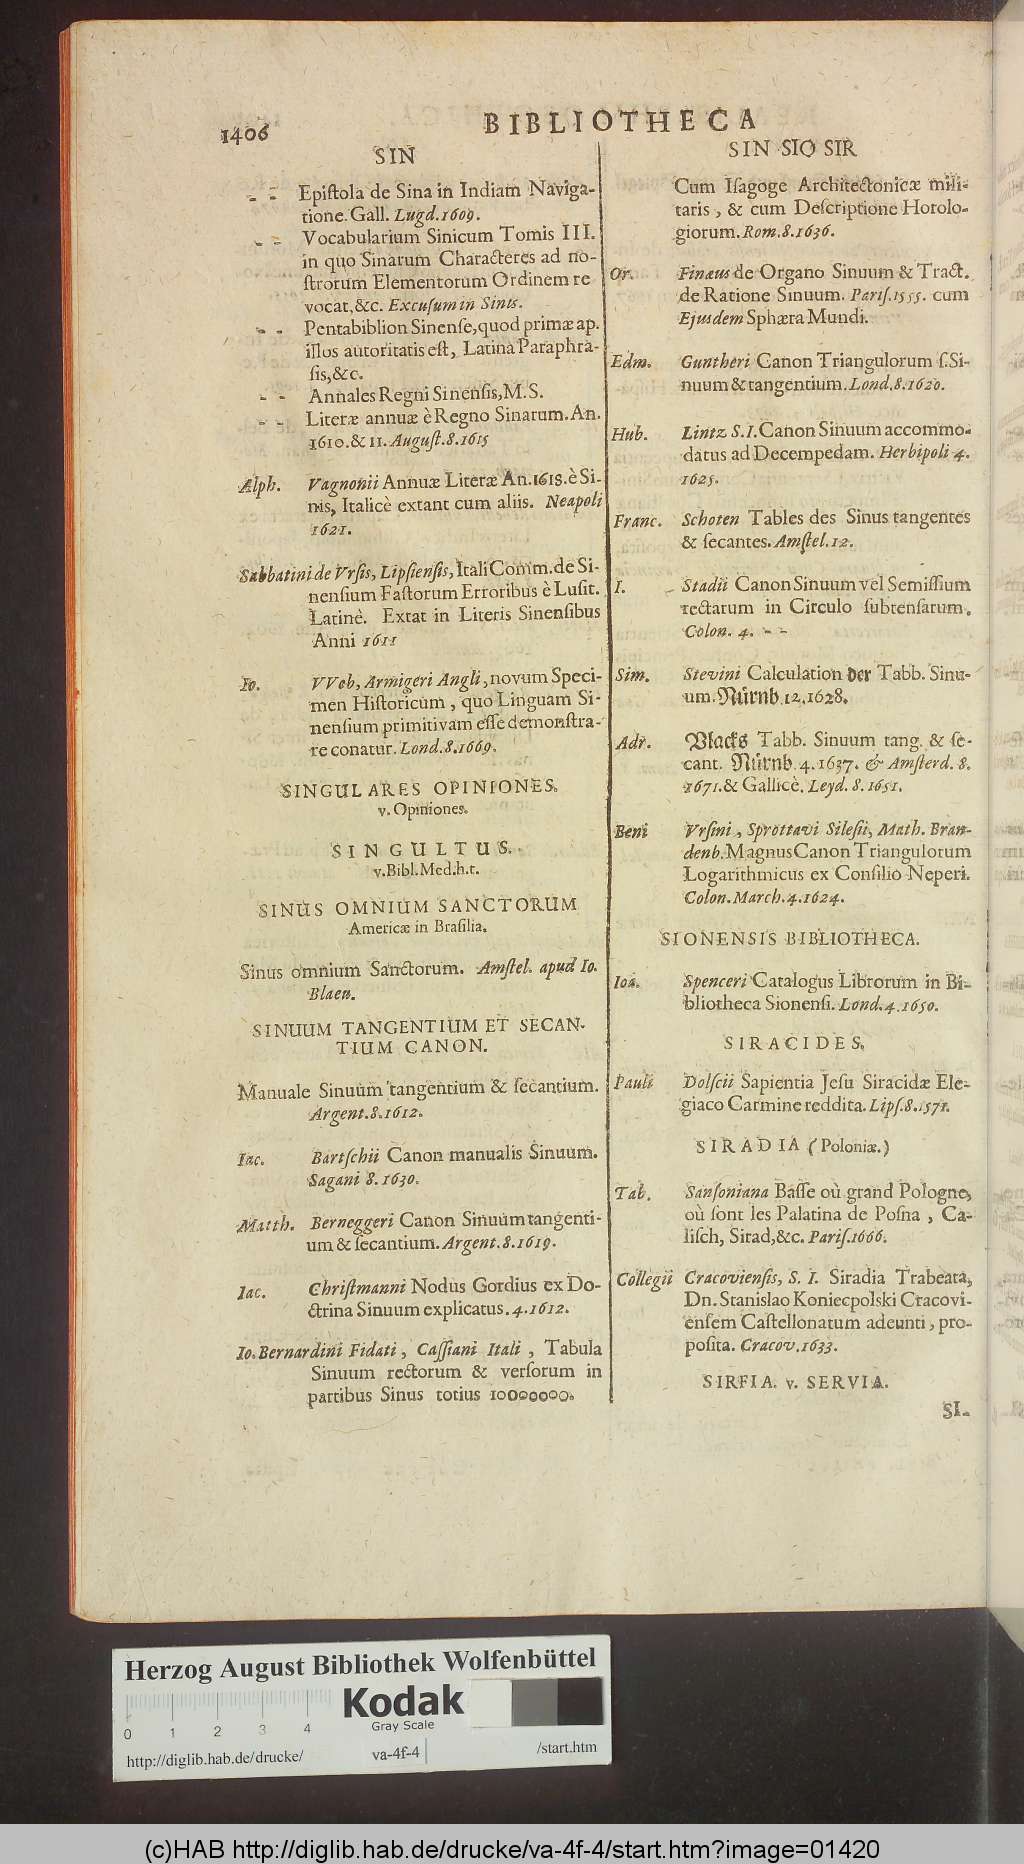 1406
BIBLIOTHECA
SIN
- - Epiſtola de Sina in Indiam Naviga-
tione. Gall. Lugd. 1609.
- - Vocabularium Sinicum Tomis III.
in quo Sinarum Characteres ad no-
ſtrorum Elementorum Ordinem re
vocat, &c. Excuſum in Sinis.
- - Pentabiblion Sinenſe, quod primæ ap.
illos autoritatis eſt, Latina Paraphra-
ſis, &c.
- - Annales Regni Sinenſis, M.S.
- - Literæ annuæ è Regno Sinarum. An.
1610. & 11. Auguſt. 8. 1615
Alph. Vagnonii Annuæ Literæ An. 1618. è Si-
nis, Italicè extant cum aliis. Neapoli
1621.
Sabbatini de Vrſis, Lipſienſis, Itali Comm. de Si-
nenſium Faſtorum Erroribus è Luſit.
Latinè. Extat in Literis Sinenſibus
Anni 1611
Io. VVeb, Armigeri Angli, novum Speci-
men Hiſtoricum, quo Linguam Si-
nenſium primitivam eſſe demonſtra-
re conatur. Lond. 8. 1669.
SINGULARES OPINIONES.
v. Opiniones.
SINGULTUS.
v. Bibl. Med. h. t.
SINUS OMNIUM SANCTORUM
Americæ in Braſilia.
Sinus omnium Sanctorum. Amſtel. apud Io.
Blaen.
SINUUM TANGENTIUM ET SECAN-
TIUM CANON.
Manuale Sinuum tangentium & ſecantium.
Argent. 8. 1612.
Iac. Bartſchii Canon manualis Sinuum.
Sagani 8. 1630.
Matth. Berneggeri Canon Sinuum tangenti-
um & ſecantium. Argent. 8. 1619.
Iac. Chriſtmanni Nodus Gordius ex Do-
ctrina Sinuum explicatus. 4. 1612.
Io. Bernardini Fidati, Caſſiani Itali, Tabula
Sinuum rectorum & verſorum in
partibus Sinus totius 10000000.
SIN SIO SIR
Cum Iſagoge Architectonicæ mili-
taris, & cum Deſcriptione Horolo-
giorum. Rom. 8. 1636.
Or. Finæus de Organo Sinuum & Tract.
de Ratione Sinuum. Pariſ. 1555. cum
Ejusdem Sphæra Mundi.
Edm. Guntheri Canon Triangulorum ſ. Si-
nuum & tangentium. Lond. 8. 1620.
Hub. Lintz S. I. Canon Sinuum accommo-
datus ad Decempedam. Herbipoli 4.
1625.
Franc. Schoten Tables des Sinus tangentes
& ſecantes. Amſtel. 12.
I. Stadii Canon Sinuum vel Semiſſium
rectarum in Circulo ſubtenſarum.
Colon. 4. - -
Sim. Stevini Calculation der Tabb. Sinu-
um. Nürnb. 12. 1628.
Adr. Vlacks Tabb. Sinuum tang. & ſe-
cant. Nürnb. 4. 1637. & Amſterd. 8.
1671. & Gallicè. Leyd. 8. 1651.
Beni Vrſini, Sprottavi Sileſii, Math. Bran-
denb. Magnus Canon Triangulorum
Logarithmicus ex Conſilio Neperi.
Colon. March. 4. 1624.
SIONENSIS BIBLIOTHECA.
Ioa. Spenceri Catalogus Librorum in Bi-
bliotheca Sionenſi. Lond. 4. 1650.
SIRACIDES.
Pauli Dolſcii Sapientia Jeſu Siracidæ Ele-
giaco Carmine reddita. Lipſ. 8. 1571.
SIRADIA (Poloniæ.)
Tab. Sanſoniana Baſſe où grand Pologne,
où ſont les Palatina de Poſna, Ca-
liſch, Sirad, &c. Pariſ. 1666.
Collegii Cracovienſis, S. I. Siradia Trabeata,
Dn. Stanislao Koniecpolski Cracovi-
enſem Caſtellonatum adeunti, pro-
poſita. Cracov. 1633.
SIRFIA. v. SERVIA.
SI-
Herzog August Bibliothek Wolfenbüttel
Kodak
Gray Scale
0 1 2 3 4
http://diglib.hab.de/drucke/ va-4f-4 /start.htm
(c)HAB http://diglib.hab.de/drucke/va-4f-4/start.htm?image=01420